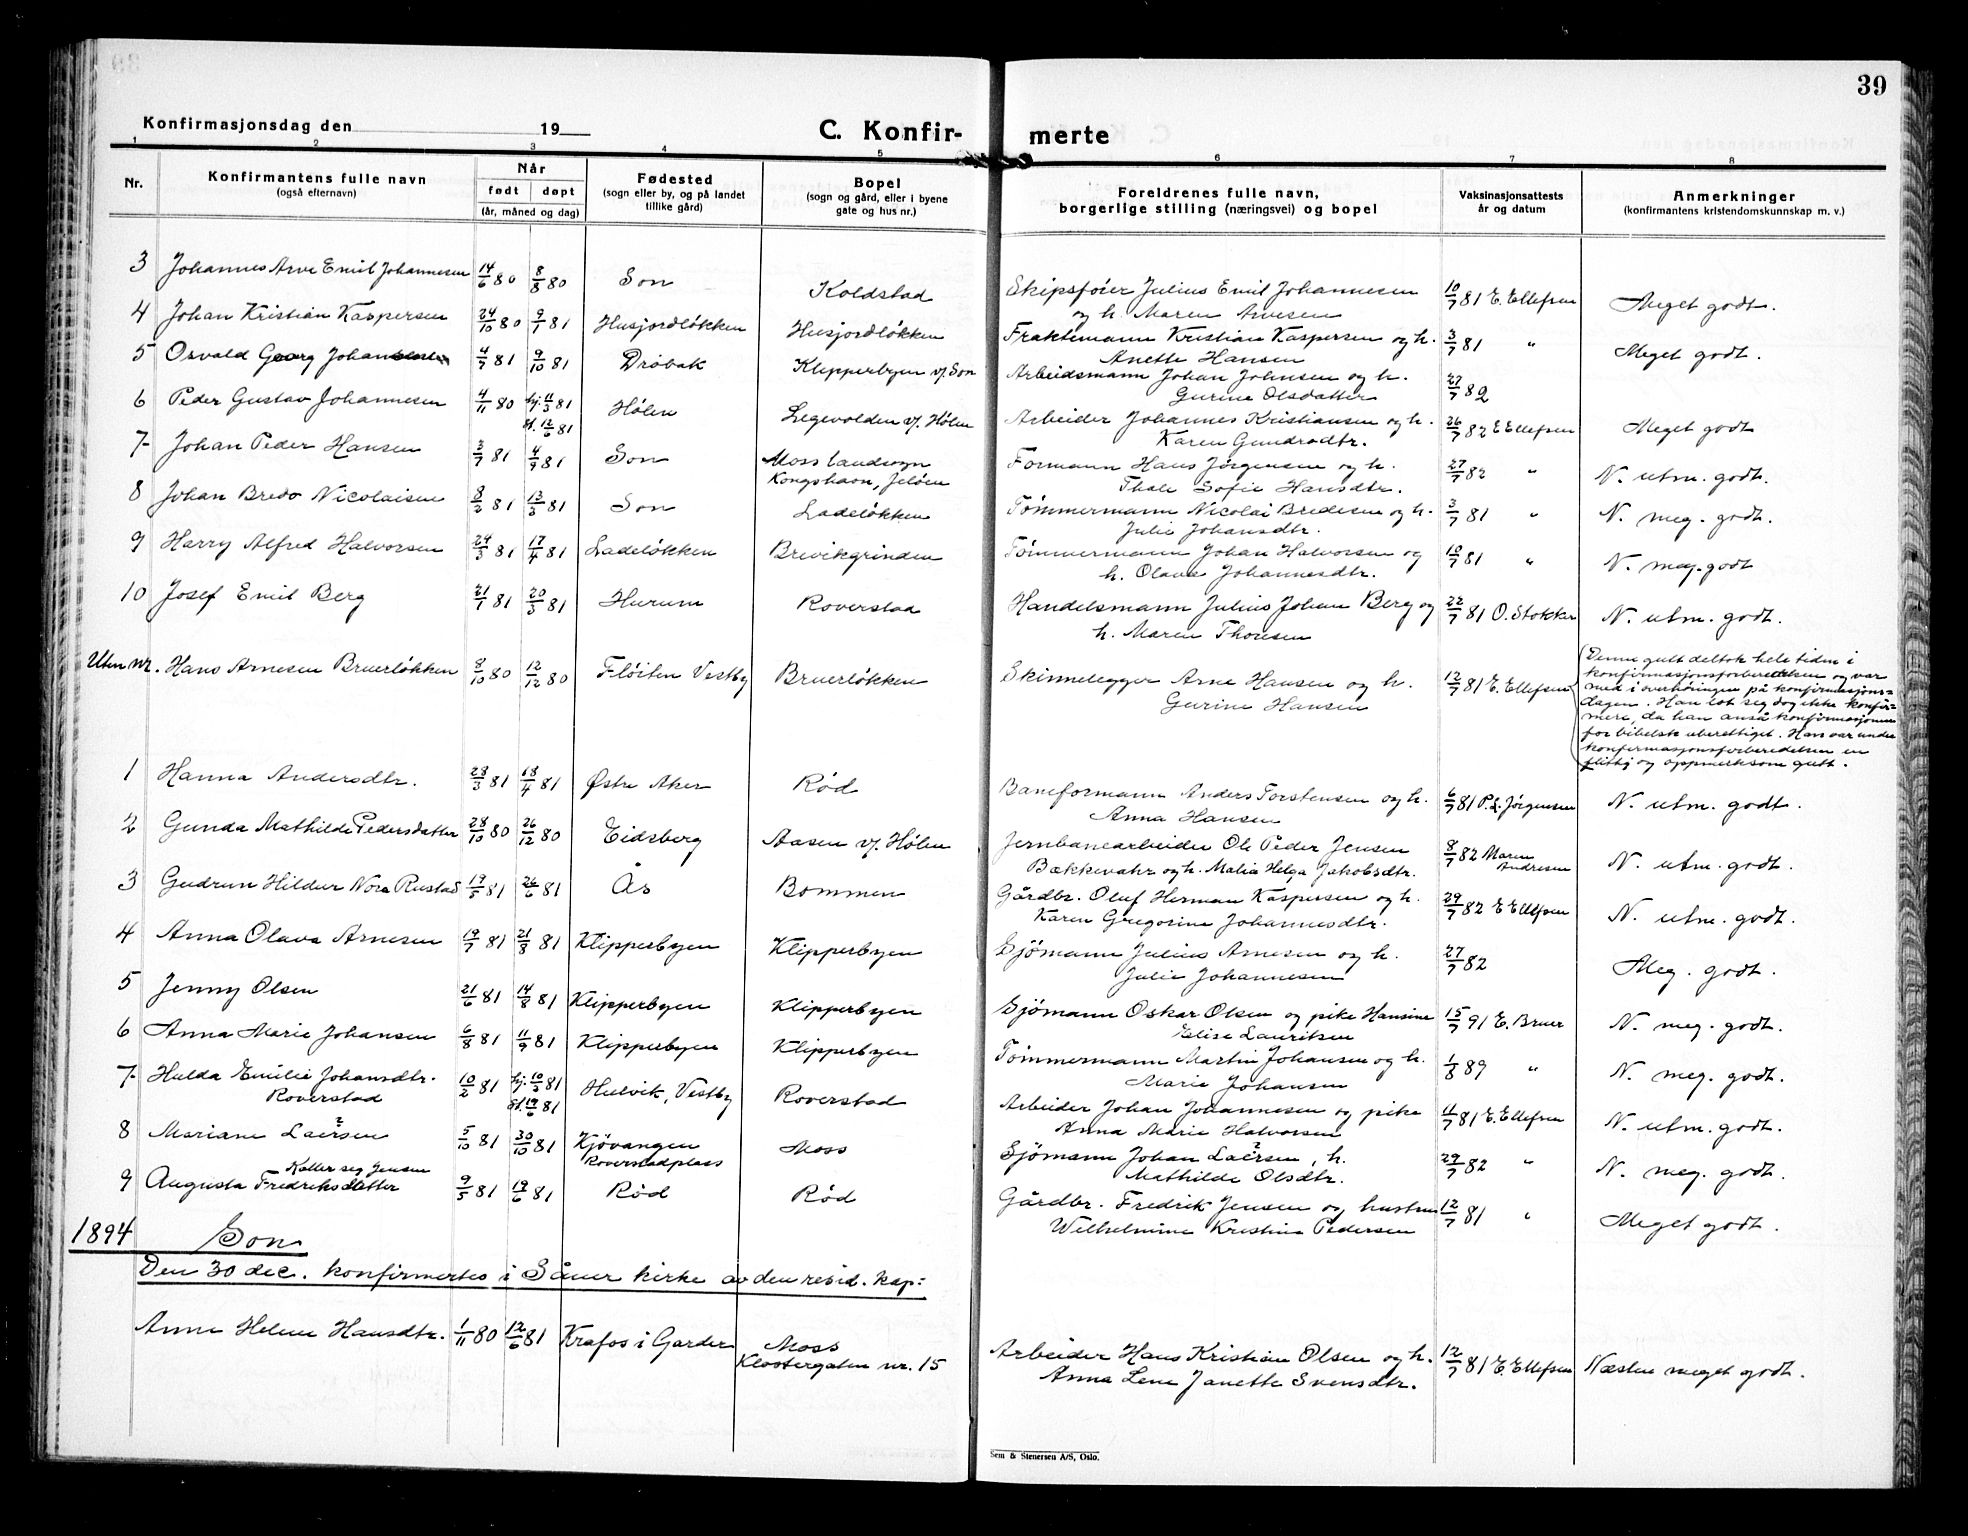 39
Konfirmasjonsdag den 19
C. Konfir-
merte
1 2 3 4 5 6 7 8
Nr.
Konfirmantens fulle navn
(også efternavn)
Når
født døpt
(år, måned og dag)
Fødested
(sogn eller by, og på landet
tillike gård)
Bopel
(sogn og gård, eller i byene
gate og hus nr.)
Foreldrenes fulle navn,
borgerlige stilling (næringsvei) og bopel
Vaksinasjonsattests
år og datum
Anmerkninger
(konfirmantens kristendomskunnskap m. v.)
3 Johannes Arve Emil Johannesen 14/6 80 8/8 80 Son Koldstad Skipsfører Julius Emil Johannesen 10/7 81 E. Ellefsen Meget godt.
og h. Maren Arvesen
4 Johan Kristian Kaspersen 24/10 80 9/1 81 Husjordløkken Husjordløkken Fraktemann Kristian Kaspersen og h. 3/7 81 " Meget godt.
Anette Hansen
5 Osvald Georg Johansen 4/7 81 9/10 81 Drøbak Klipperbyen v/ Son Arbeidsmann Johan Johnsen og h. 27/7 82
Gurine Olsdatter
6 Peder Gustav Johannesen 4/11 80 hj. 11/3 81 Hølen Legevolden v/ Hølen Arbeider Johannes Kristiansen og h. 26/7 82 E Ellefsen Meget godt
st. 12/6 81 Karen Gundrodtr.
7 Johan Peder Hansen 3/7 81 4/9 81 Son Moss landsogn Formann Hans Jørgensen og h. 27/7 82 " N. utm. godt.
Kongshavn, Jeløen Thale Sofie Hansdtr.
8 Johan Bredo Nicolaisen 8/2 81 13/3 81 Son Ladeløkken Tømmermann Nicolai Bredesen og h. 3/7 81 " N. meg. godt.
Julie Johansdtr.
9 Harry Alfred Halvorsen 24/3 81 17/4 81 Ladeløkken Brevikgrinden Tømmermann Johan Halvorsen og 10/7 81 " N. meg. godt
h. Olava Johannesdtr.
10 Josef Emil Berg 21/1 81 20/3 81 Hurum Roverstad Handelsmann Julius Johan Berg og 22/7 81 O. Stokker N. utm. godt.
h. Maren Thoresen
Uten nr. Hans Arnesen Bruerløkken 8/10 80 12/12 80 Fløiten Vestby Bruerløkken Skinnelegger Arne Hansen og h. 12/7 81 E. Ellefsen
Gurine Hansen
Denne gutt deltok hele tiden i
konfirmasjonsforberedelsen og var
med i overhøringen på konfirmasjons-
dagen. Han lot seg dog ikke konfir-
mere, da han anså konfirmasjonen
for bibelsk uberettiget. Hans var under
konfirmasjonsforberedelsen en
flittig og oppmerksom gutt.
1 Hanna Andersdtr. 28/3 81 18/4 81 Østre Aker Rød Baneformann Anders Torstensen og h. 6/7 81 P. L. Jørgensen N. utm. godt.
Anna Hansen
2 Gunda Mathilde Pedersdatter 28/10 80 26/12 80 Eidsberg Aasen v/ Hølen Jernbanearbeider Ole Peder Jensen 8/7 82 Maren Andresen N. utm. godt.
Bækkevahr og h. Malia Helga Jakobsdtr.
3 Gudrun Hildur Nora Rustad 19/5 81 26/6 81 Ås Bommen Gårdbr. Oluf Herman Kaspersen og h. 29/7 82 E Ellefsen N. utm. godt.
Karen Gregorine Johannesdtr.
4 Anna Olava Arnesen 19/7 81 21/8 81 Klipperbyen Klipperbyen Sjømann Julius Arnesen og h. 27/7 82 Meg. godt.
Julie Johannesen
5 Jenny Olsen 21/6 81 14/8 81 Klipperbyen Klipperbyen Sjømann Oskar Olsen og pike Hansine 15/7 91 E. Bruer N. meg. godt.
Elise Lauritsen
6 Anna Marie Johansen 6/8 81 11/9 81 Klipperbyen Klipperbyen Tømmermann Martin Johansen og h. 1/8 89 " N. meg. godt.
Marie Johansen
7 Hulda Emilie Johansdtr. 10/2 81 hj. 10/3 81 Hulvik, Vestby Roverstad Arbeider Johan Johannesen og pike 11/7 81 E. Ellefsen N. utm. godt.
Roverstad st. 19/6 81 Anna Marie Halvorsen
8 Mariane Laersen ? 5/10 81 30/10 81 Kjøvangen Moss Sjømann Johan Laersen ?, h. 29/7 82 " N. meg. godt.
Roverstadplass Mathilde Olsdtr.
Kaller seg Jensen
9 Augusta Fredriksdatter 9/5 81 19/6 81 Rød Rød Gårdbr. Fredrik Jensen og hustru 12/7 81 " Meget godt.
Wilhelmine Kristine Pedersen
1894 Son
Den 30 dec. konfirmertes i Såner kirke av den resid. kap:
Anne Helene Hansdtr. 1/11 80 12/6 81 Krafos i Garder Moss Arbeider Hans Kristian Olsen og h. 12/7 81 E. Ellefsen Næsten meget godt.
Klostergaten nr. 15 Anna Lene Janette Svensdtr.
Sem & Stenersen A/S, Oslo.